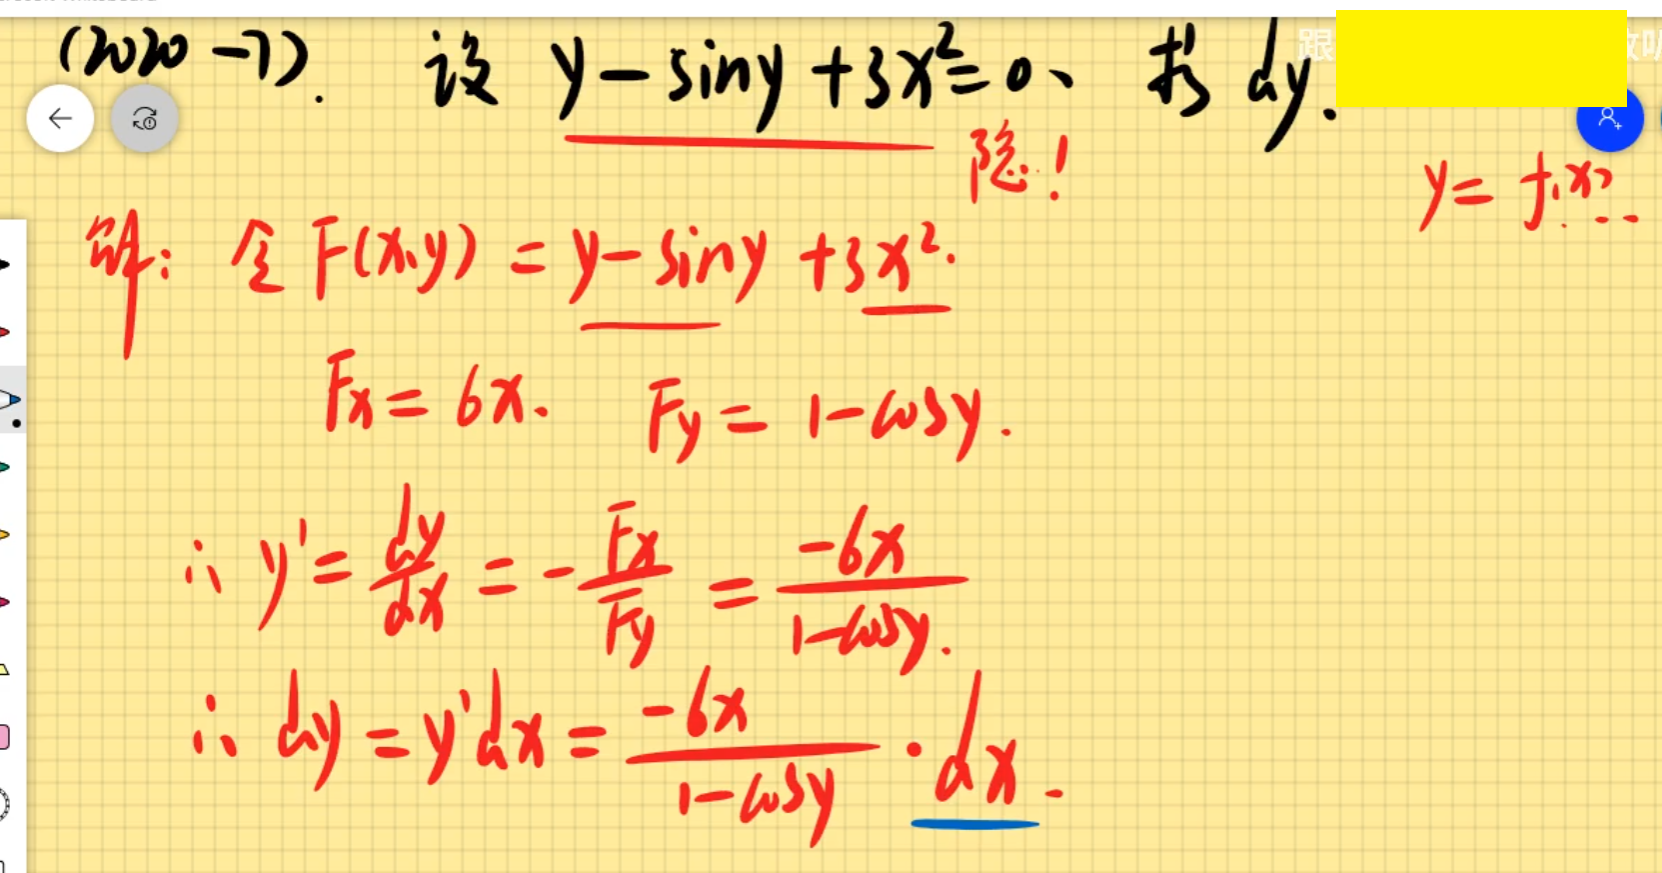 (2020-7). 设 y-siny+3x²=0、 求 dy.
隐!
y= f(x)
解: 令 F(x,y) = y-siny+3x².
Fx = 6x. Fy = 1-cosy.
∴ y' = dy/dx = -Fx/Fy = -6x/1-cosy.
∴ dy = y'dx = -6x/1-cosy · dx.